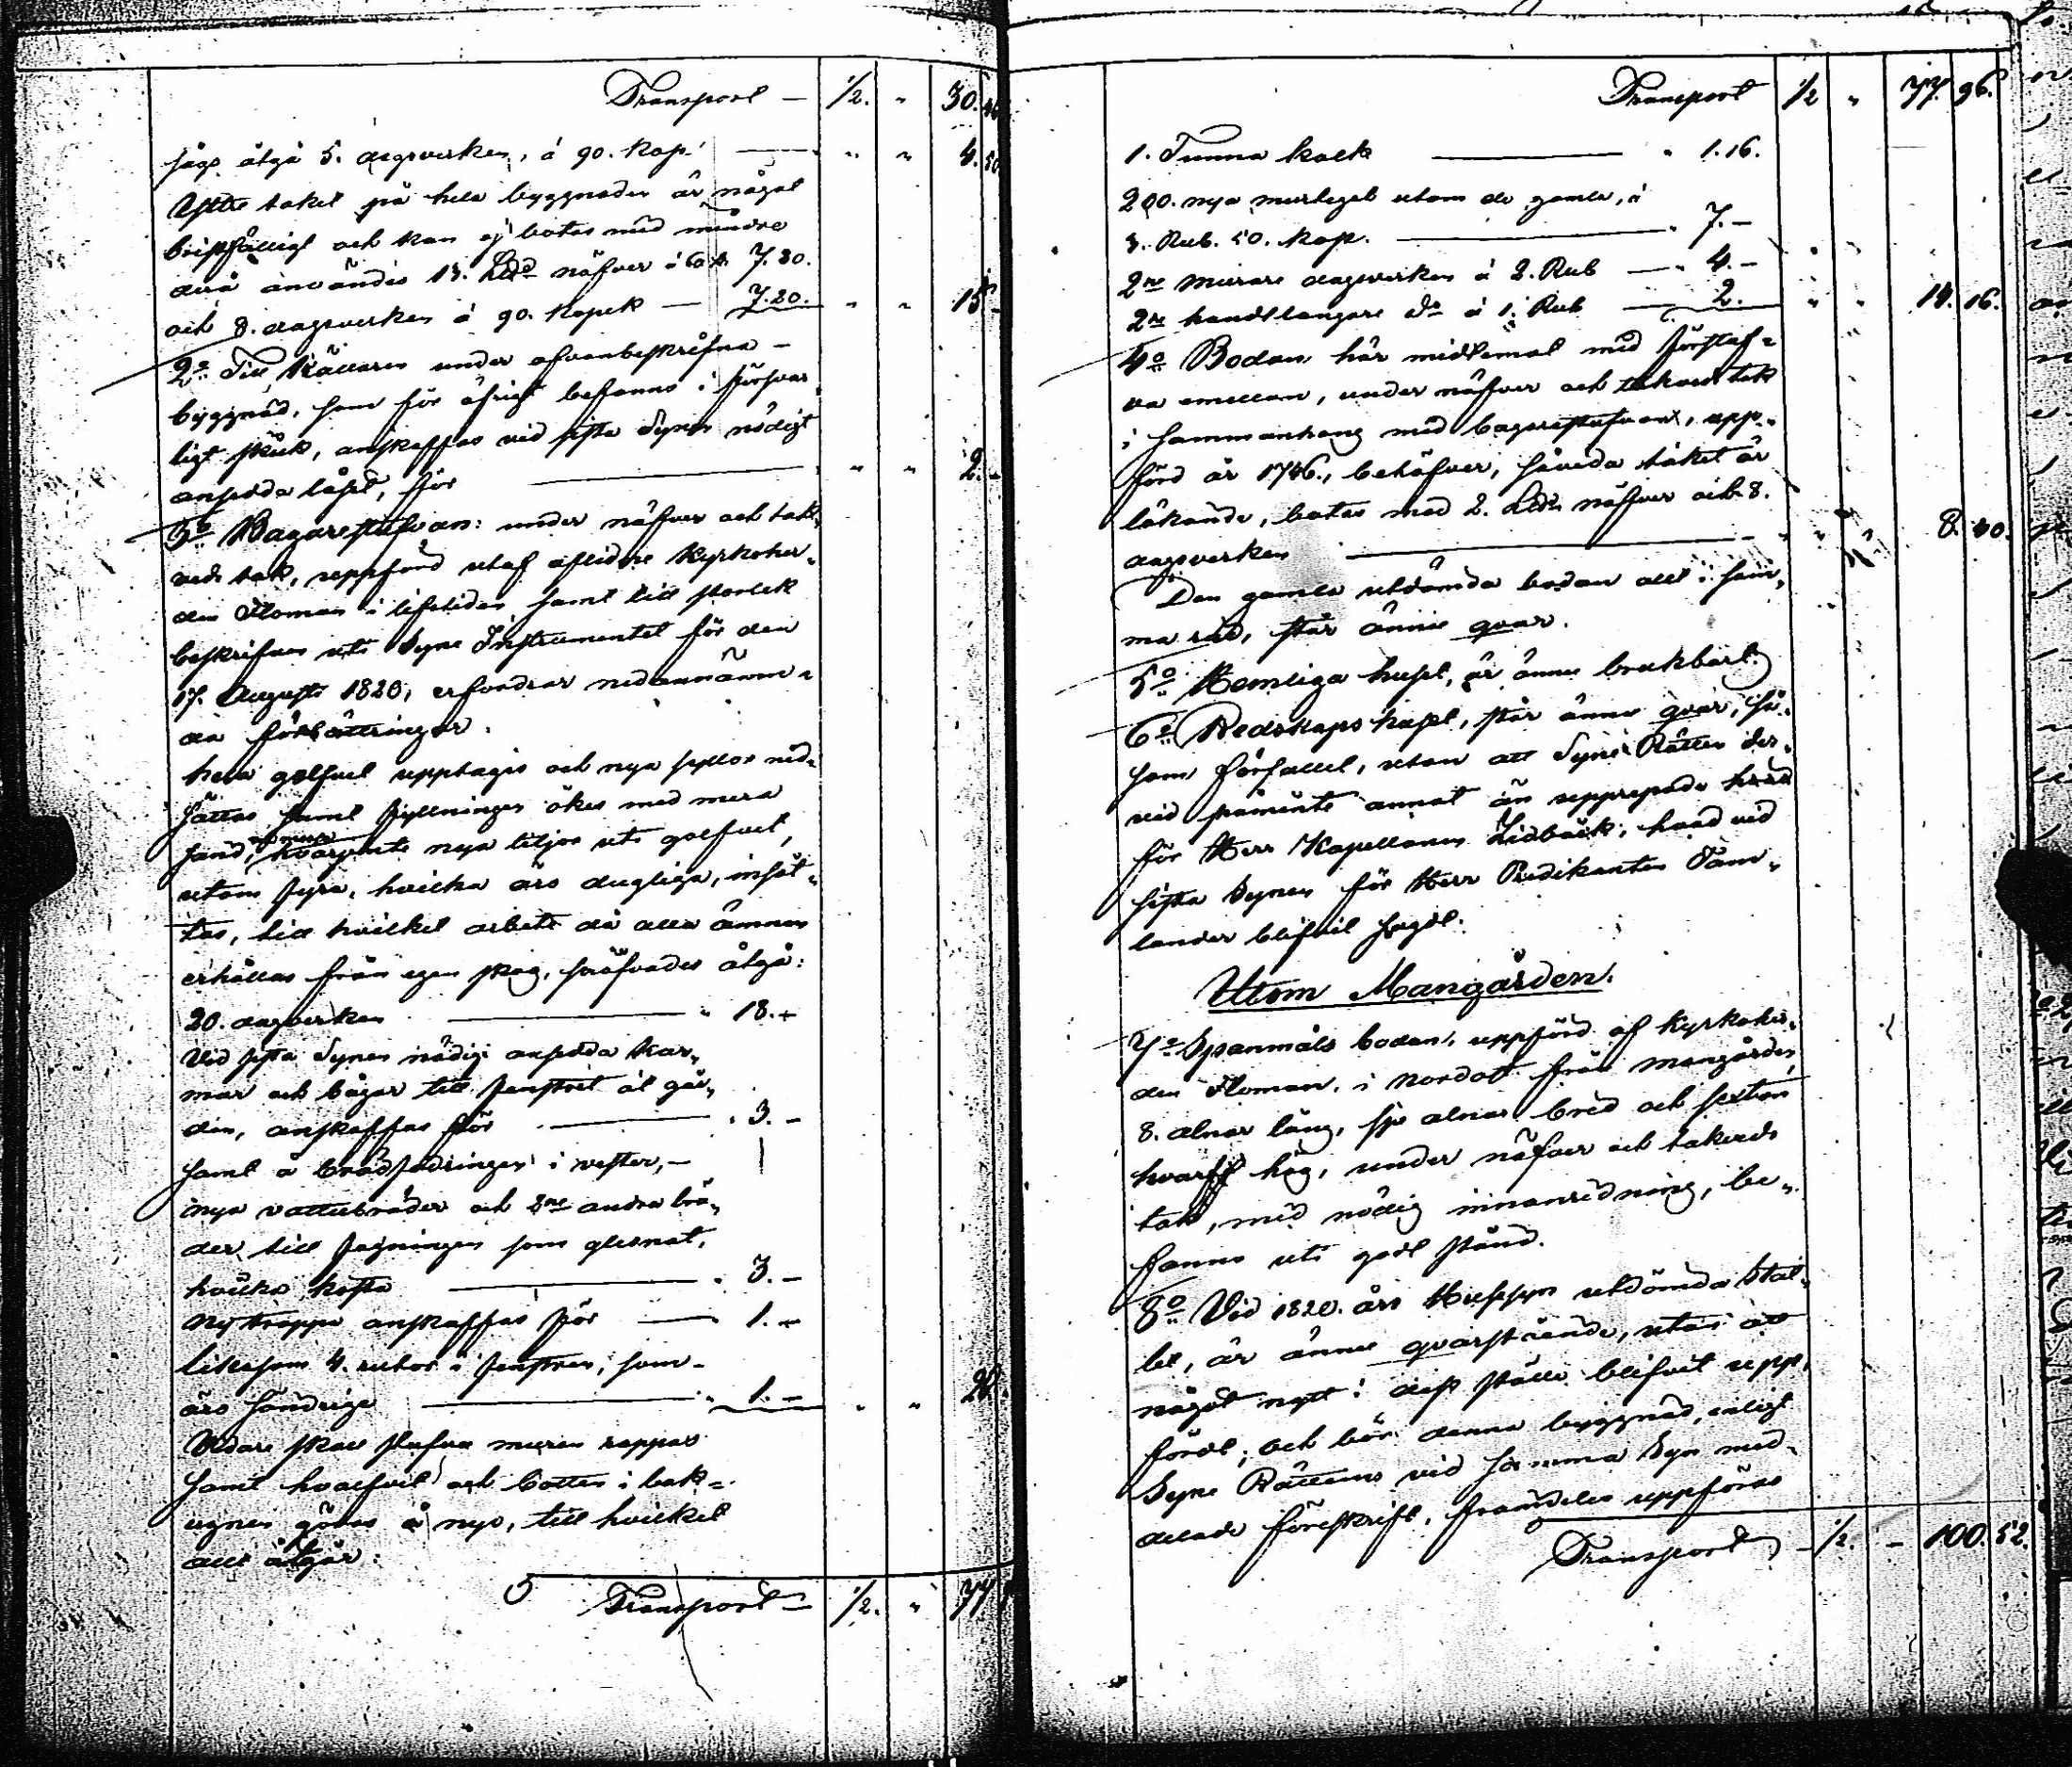 Transport — 1/2. " 30.46
sågs åtgå 5. dagsverken, á 90. kop. — " " 4.50
Yttre taket på hela byggnaden är något
bristfälligt och kan ej botas med mindre
derå användes 13. Lddr näfver á 60 k. 7.80.
och 8. dagsverken á 90. kopek — 7.20. " " 15.-
2o Till Källaren under ofvanbeskrifna —
byggnad, som för öfrigt befanns i försvar„
ligt skick, anskaffas vid sista Synen nödigt
ansedda låset, för — " " 2.-
3o Bagarestufvan: under näfver och tak„
veds tak, uppförd utaf aflidne Kyrkoher„
den Floman i lifstiden samt till storlek
beskrifven uti Syne Instrumentet för den
17. Augusti 1820, erfordrar nedannämn„
da förbättringar.
hela golfvet upptages och nya syllor ned„
sättas samt fyllningen ökes med mera
sand, nya tiljor uti golfvet,
utom fyra, hvilka äro dugliga, insät„
tas, till hvilket arbete då alla ämnen
erhållas från egen skog, pröfvades åtgå:
20. dagsverken — " 18.-
Vid sista Synen nödigt ansedda kar„
mar och bågar till fenstret åt går„
den, anskaffas för — " 3.-
samt å brädfodringen i vester, —
nya vattubräder och 2ne andra brä„
der till fogningen som glesnat,
hvilka kosta — " 3.-
Ny trappa anskaffas för — " 1.-
likasom 4. rutor i fenstren, som
äro söndriga — " 1.- " " 26.
Vidare skall stufvu muren rappas
samt hvalfvet och botten i bak„
ugnen göras å nyo, till hvilket
allt åtgår:
Transport — 1/2. " 77
Transport 1/2 " 77. 96.
1. Tunna kalk — " 1.16.
200. nya murtegel utom de gamla, á
3. Rub. 50. kop. — " 7.-
2ne murare dagsverken á 2. Rub — " 4.-
2ne handtlangare do á 1. Rub — 2. " " 14. 16.
4o Bodan här midtemot med förstuf„
va emellan, under näfver och takveds tak
i sammanhang med bagarestufvan, upp„
förd år 1746., behöfver, såvida taket är
läkande, botas med 2. Lddr näfver och 8.
dagsverken — " " 8. 40.
Den gamla utdömda bodan allt i sam„
ma rad, står ännu qvar.
5o Hemliga huset, är ännu brukbart.
6o Redskaps huset, står ännu qvar, så„
som förfallet, utan att Syne Rätten der„
vid påminte annat än upprepade hvad
för Herr Kapellanen Lidbäck, hvad vid
sista Synen för Herr Predikanten Tam„
lander blifvit sagdt.
Utom Mangården.
7o Spanmåls bodan, uppförd af Kyrkoher„
den Floman, i nordost från mangården,
8. alnar lång, sju alnar bred och sexton
hvarf hög, under näfver och takveds
tak, med nödig innanredning, be„
fanns uti godt stånd.
8o Vid 1820. års Hussyn utdömda Stal„
let, är ännu qvarstående, utan att
något nytt i dess ställe blifvit upp„
fördt; och bör denna byggnad, enligt
Syne Rättens vid samma Syn med„
delade föreskrift, framdeles uppföras
Transport — 1/2. — 100. 52.